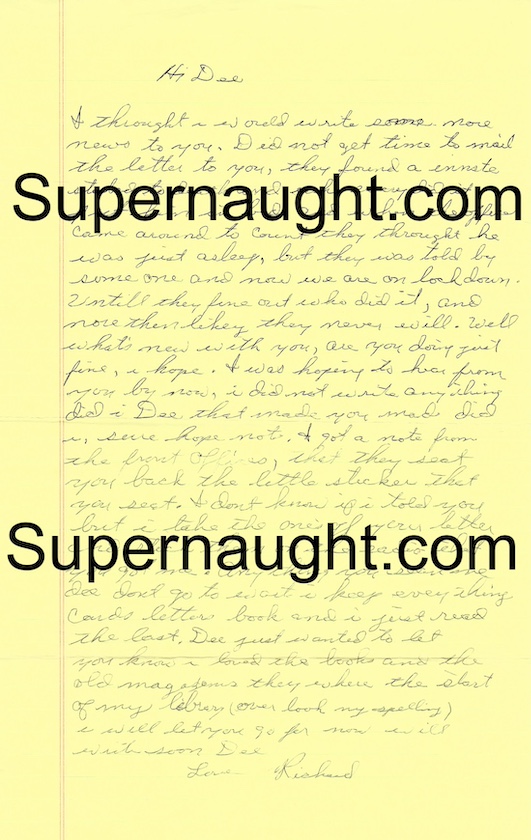 Hi Dee
I throught i would write some more
news to you. Did not get time to mail
the letter to you, they found a innste
Supernaught.com
came around to count they throught he
was just asleep, but they was told by
some one and now we are on lockdown.
Untill they fine out who did it, and
more then likey they never will. Well
what's new with you, are you doing just
fine, i hope. I was hoping to hear from
you by now, i did not write any thing
did i Dee that made you made did
i, sure hope not. I got a note from
the front offices, that they seat
you back the little sticker that
you seat. I don't know if i told you
but i take the ones of your letter
Supernaught.com
Dee dont go to wait i keep every thing
cards letters book and i just read
the last. Dee just wanted to let
you know i loved the books and the
old magazems they where the start
of my library (over look my spelling)
i will let you go for now will
write soon Dee
Love Richard